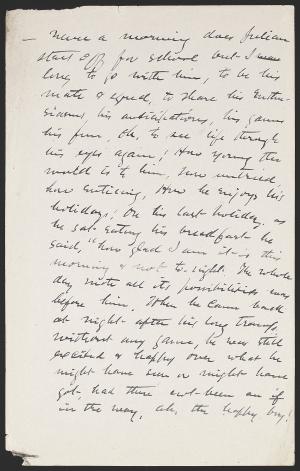 — Never a morning does Julian
start off for school but I
long to go with him, to be his
mate & equal, to share his Enthu-
siasms, his anticipations, his games
his fun, Oh, to see life through
his eyes again! How young the
world is to him, how untried
how enticing, How he enjoys his
holidays! On his last holiday, as
he sat eating his breakfast he
said, "how glad I am it is this
morning & not to-night. The whole
day with all its possibilities was
before him. When he came back
at night after his long tramp,
without any game, he was still
excited & happy over what he
might have seen or might have
got, had there not been an if
in the way, ah, the happy boy!